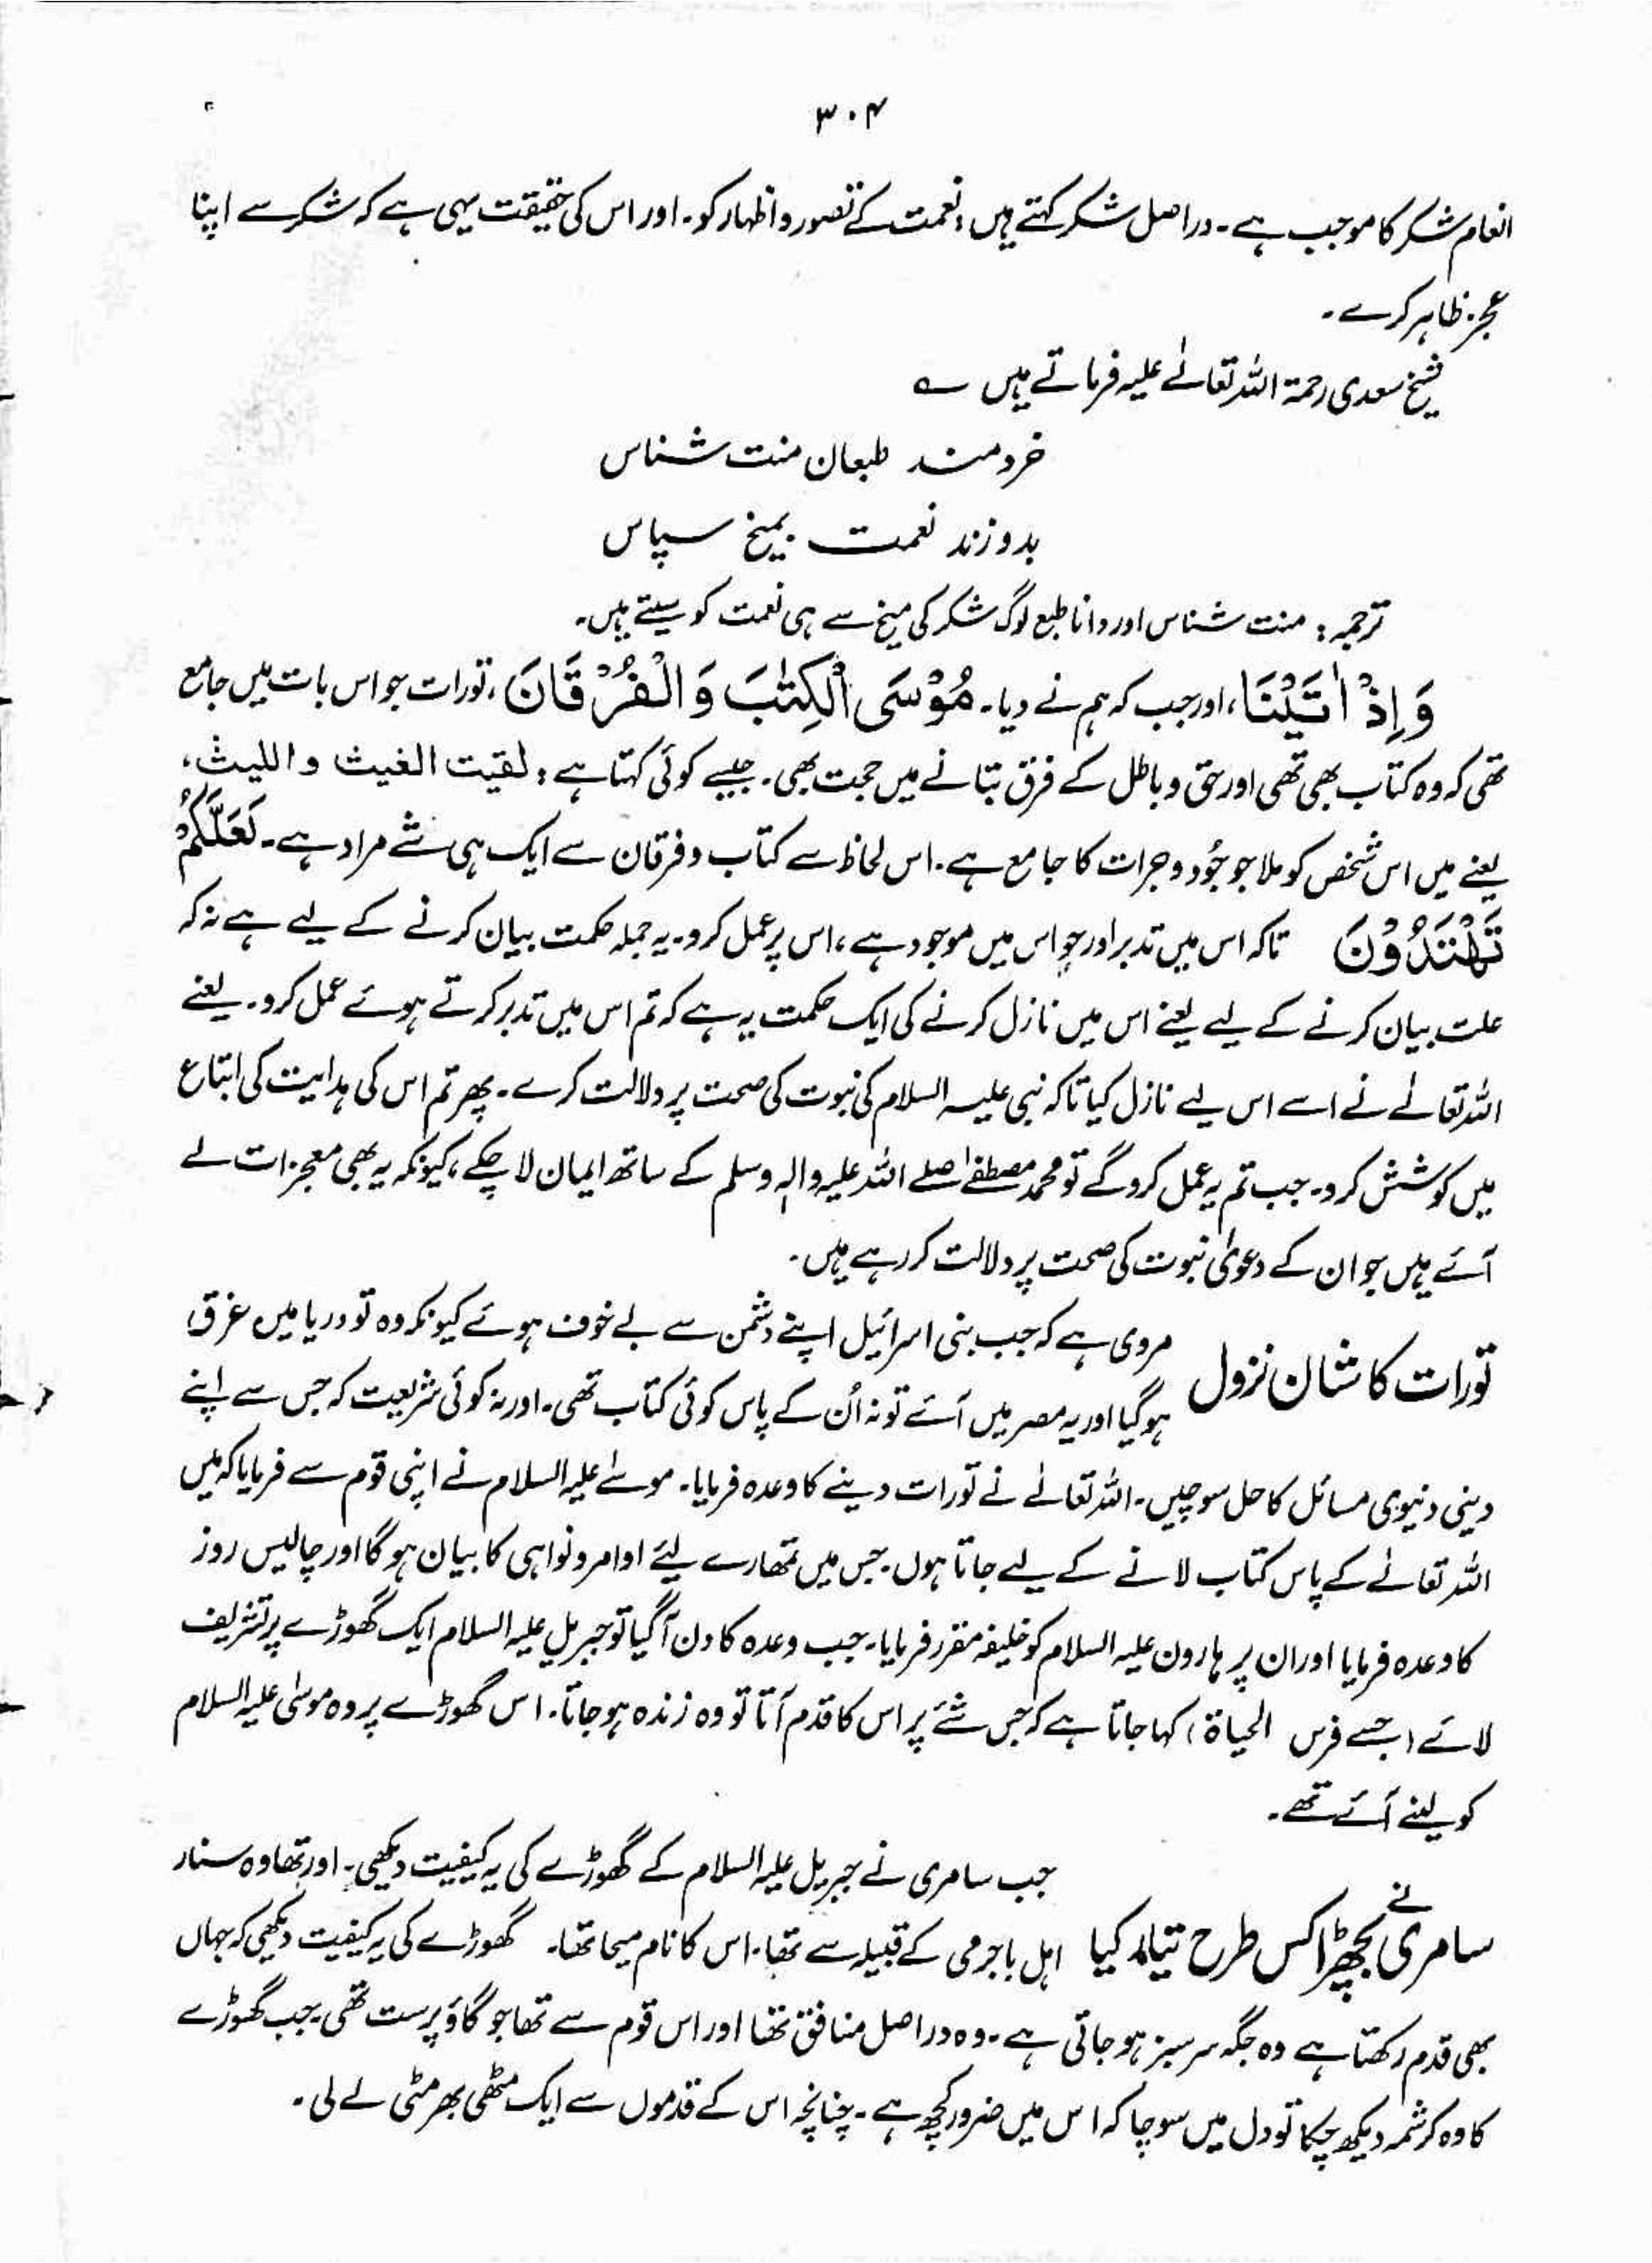 ۳۰۴
انعام شکر کا موجب ہے۔ دراصل شکر کہتے ہیں : نعمت کے تصور و اظہار کو۔ اور اس کی حقیقت یہی ہے کہ شکر سے اپنا
عجز ظاہر کرے۔
شیخ سعدی رحمۃ اللہ تعالےٰ علیہ فرماتے ہیں ؎
خردمند طبعان منت شناس
بدوزند نعمت بمیخ سپاس
ترجمہ : منت شناس اور دانا طبع لوگ شکر کی میخ سے ہی نعمت کو سیتے ہیں۔
وَ اِذْ اٰتَیْنَا، اور جب کہ ہم نے دیا۔ مُوْسَی الْکِتٰبَ وَ الْفُرْقَانَ، تورات جو اس بات میں جامع
تھی کہ وہ کتاب بھی تھی اور حق و باطل کے فرق بتانے میں حجت بھی۔ جیسے کوئی کہتا ہے : لقیت الغیث و اللیث،
یعنے میں اس شخص کو ملا جو جُود و جرات کا جامع ہے۔ اس لحاظ سے کتاب و فرقان سے ایک ہی شے مراد ہے۔ لَعَلَّکُمْ
تَھْتَدُوْنَ تاکہ اس میں تدبر اور جو اس میں موجود ہے ، اس پر عمل کرو۔ یہ جملہ حکمت بیان کرنے کے لیے ہے نہ کہ
علت بیان کرنے کے لیے یعنے اس میں نازل کرنے کی ایک حکمت یہ ہے کہ تم اس میں تدبر کرتے ہوئے عمل کرو۔ یعنے
اللہ تعالےٰ نے اسے اس لیے نازل کیا تاکہ نبی علیہ السلام کی نبوت کی صحت پر دلالت کرے۔ پھر تم اس کی ہدایت کی اتباع
میں کوشش کرو۔ جب تم یہ عمل کرو گے تو محمد مصطفےٰ صلے اللہ علیہ واٰلہٖ وسلم کے ساتھ ایمان لا چکے ، کیونکہ یہ بھی معجزات لے
آئے ہیں جو ان کے دعویٰ نبوت کی صحت پر دلالت کر رہے ہیں۔
تورات کا شان نزول مروی ہے کہ جب بنی اسرائیل اپنے دشمن سے بے خوف ہوئے کیونکہ وہ تو دریا میں غرق
ہو گیا اور یہ مصر میں آئے تو نہ اُن کے پاس کوئی کتاب تھی۔ اور نہ کوئی شریعت کہ جس سے اپنے
دینی دنیوی مسائل کا حل سوچیں۔ اللہ تعالےٰ نے تورات دینے کا وعدہ فرمایا۔ موسےٰ علیہ السلام نے اپنی قوم سے فرمایا کہ میں
اللہ تعالےٰ کے پاس کتاب لانے کے لیے جاتا ہوں۔ جس میں تمھارے لیئے اوامر و نواہی کا بیان ہو گا اور چالیس روز
کا وعدہ فرمایا اور ان پر ہارون علیہ السلام کو خلیفہ مقرر فرمایا۔ جب وعدہ کا دن آ گیا تو جبریل علیہ السلام ایک گھوڑے پر تشریف
لائے (جسے فرس الحیاۃ) کہا جاتا ہے کہ جس شئے پر اس کا قدم آتا تو وہ زندہ ہو جاتا۔ اس گھوڑے پر وہ موسیٰ علیہ السلام
کو لینے آئے تھے۔
جب سامری نے جبریل علیہ السلام کے گھوڑے کی یہ کیفیت دیکھی۔ اور تھا وہ سنار
سامری نے بچھڑا کس طرح تیار کیا اہل باجرمی کے قبیلہ سے تھا۔ اس کا نام میحا تھا۔ گھوڑے کی یہ کیفیت دیکھی کہ جہاں
بھی قدم رکھتا ہے وہ جگہ سرسبز ہو جاتی ہے۔ وہ دراصل منافق تھا اور اس قوم سے تھا جو گاؤ پرست تھی۔ جب گھوڑے
کا وہ کرشمہ دیکھ چکا تو دل میں سوچا کہ اس میں ضرور کچھ ہے۔ چنانچہ اس کے قدموں سے ایک مٹھی بھر مٹی لے لی۔